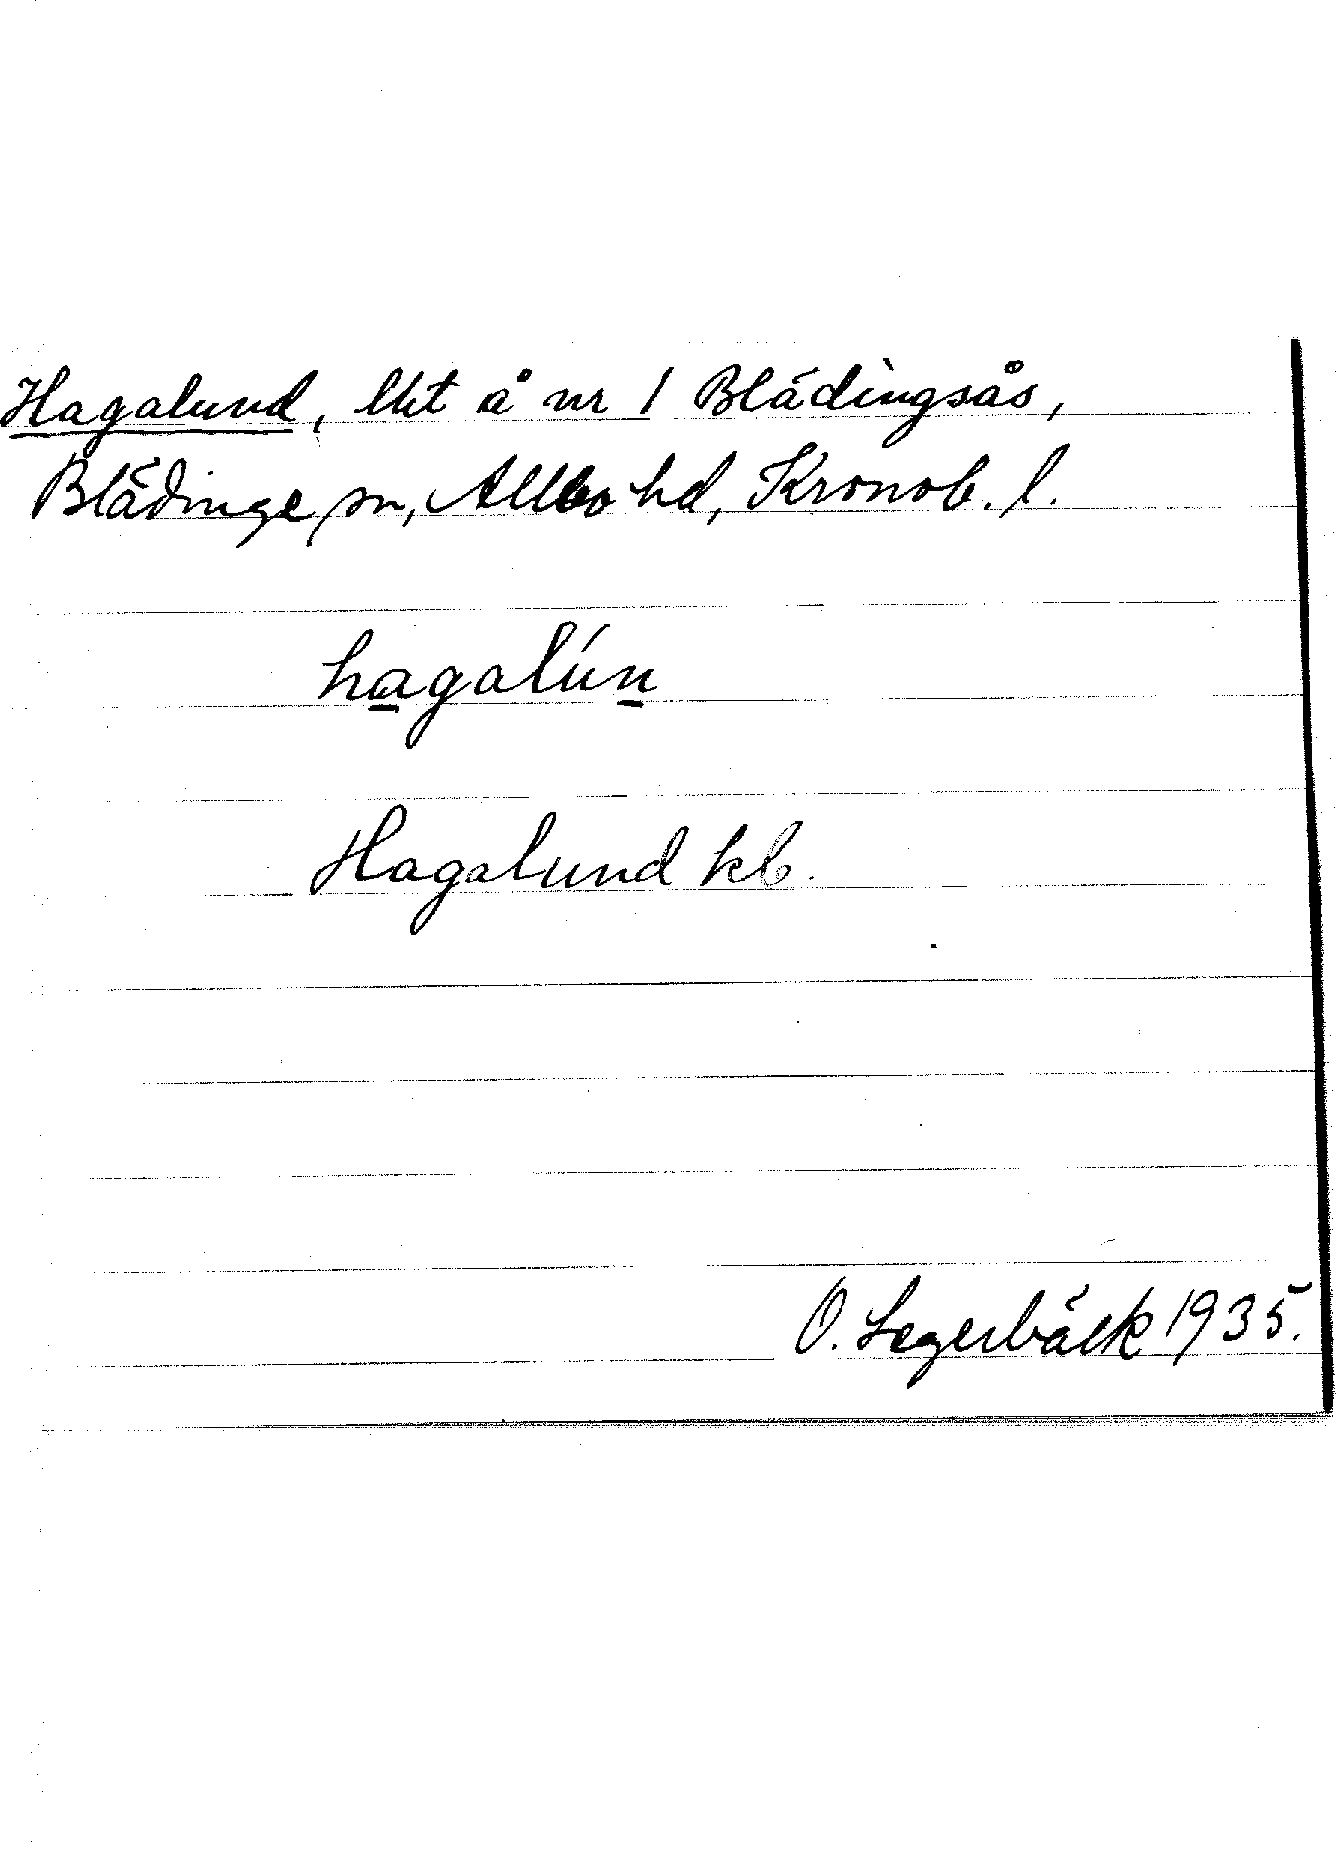 Hagalund, lht å nr 1 Blädingsås,
Blädinge sn, Allbo hd, Kronob. l.
hagalún
Hagalund kb.
O. Segerbäck 1935.